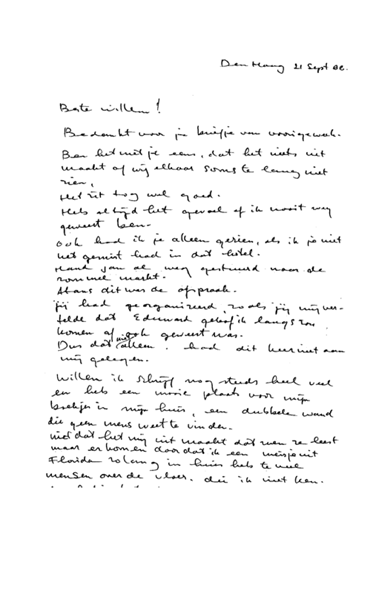 Den Haag 21 Sept 02.
Beste Willem!
Bedankt voor je briefje van vorige week.
Ben het met je eens, dat het niets uit
maakt of wij elkaar soms te lang niet
zien,
Het zit tog wel goed.
Heb altijd het gevoel of ik nooit weg
geweest ben.
Ook had ik je alleen gezien, als ik je niet
had in dat hotel.
al weg gestuurd naar de
rommel markt.
Althans dit was de afspraak.
Jij had georganiseerd, zoals jij mij ver-
telde dat Eduward geloof ik langs zou
komen of ook geweest was.
Dus dat niet alleen. had dit keer niet aan
mij gelegen.
Willem ik schrijf nog steeds heel veel
en heb een mooie plaats voor mijn
boekjes in mijn huis, een dubbele wand
die geen mens weet te vinden.
niet dat het mij uit maakt dat men ze leest
maar er komen doordat ik een meisje uit
Florida zolang in huis heb te veel
mensen over de vloer. die ik niet ken.